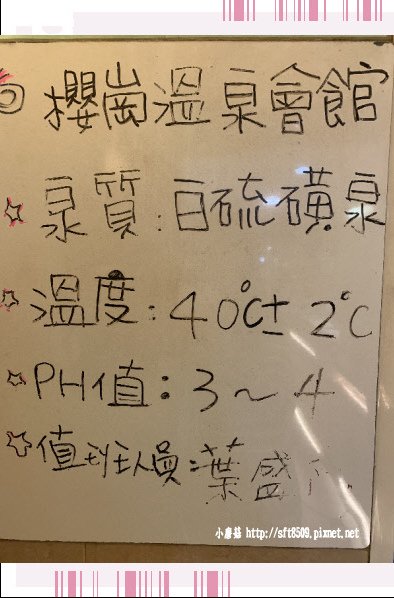 ◎ 櫻崗溫泉會館
☆ 泉質:白硫磺泉
☆ 溫度:40℃±2℃
☆ PH值:3～4
☆ 值班人員:葉盛
小蘑菇 http://sft8509.pixnet.net